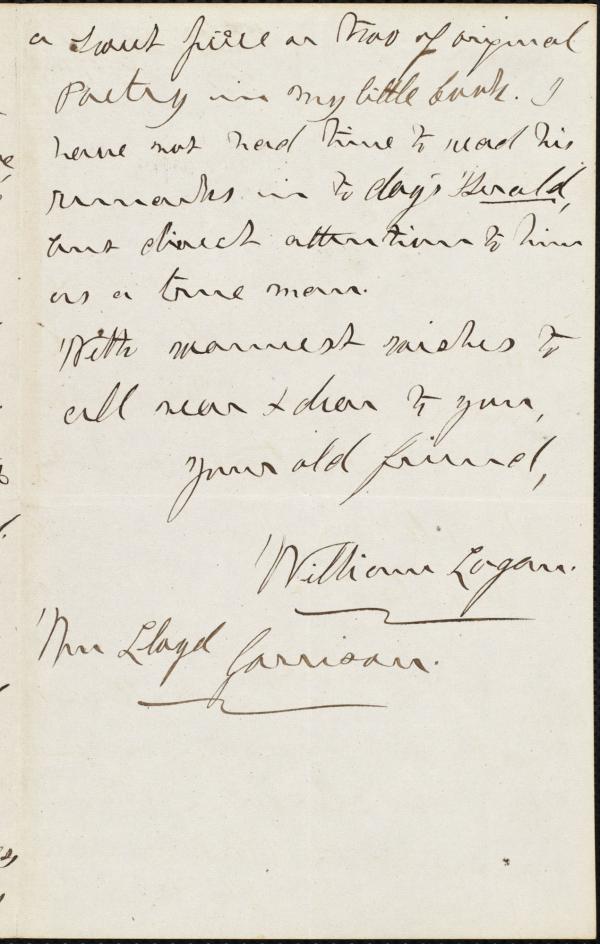 a sweet piece or two of original
Poetry in my little book. I
have not had time to read his
remarks in to day's Herald,
but direct attention to him
as a true man.
With warmest wishes to
all near & dear to you,
your old friend,
William Logan.
Wm Lloyd Garrison.